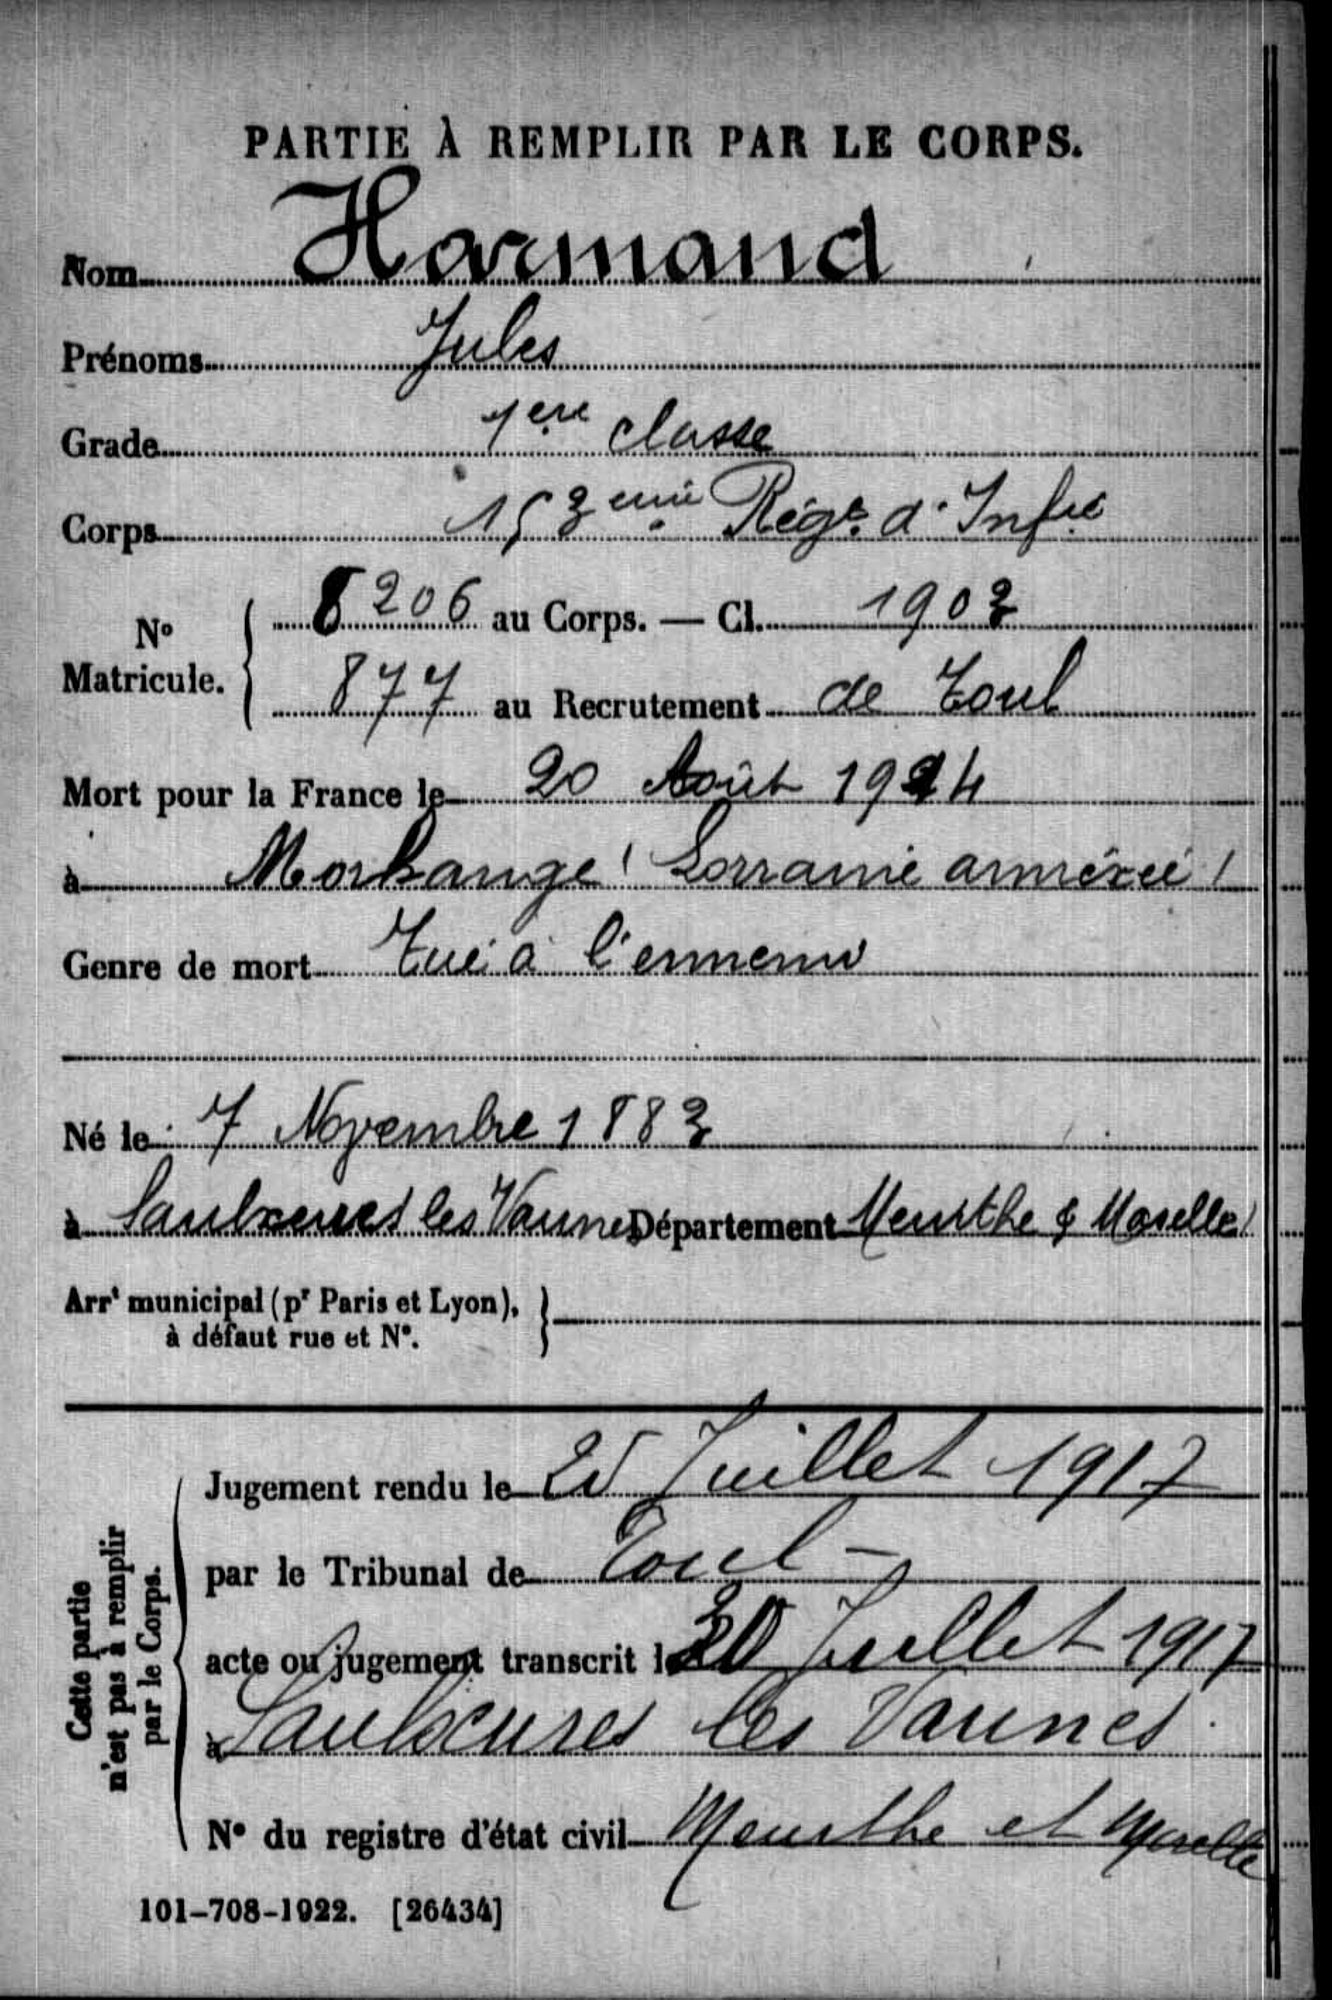 PARTIE À REMPLIR PAR LE CORPS.
Nom Harmand
Prénoms Jules
Grade 1ere classe
Corps 153eme Régt. d'Infie
8206 au Corps. — Cl. 1903
N° Matricule.
877 au Recrutement de Toul
Mort pour la France le 20 Août 1914
à Morhange (Lorraine annéxée)
Genre de mort Tué à l'ennemi
Né le 7 Novembre 1883
à Saulxures les Vannes Département Meurthe & Moselle
Arrt municipal (pr Paris et Lyon),
à défaut rue et N°.
Cette partie
n'est pas à remplir
par le Corps.
Jugement rendu le 25 Juillet 1917
par le Tribunal de Toul
acte ou jugement transcrit le 30 Juillet 1917
à Saulxures les Vannes
N° du registre d'état civil Meurthe et Moselle
101-708-1922. [26434]